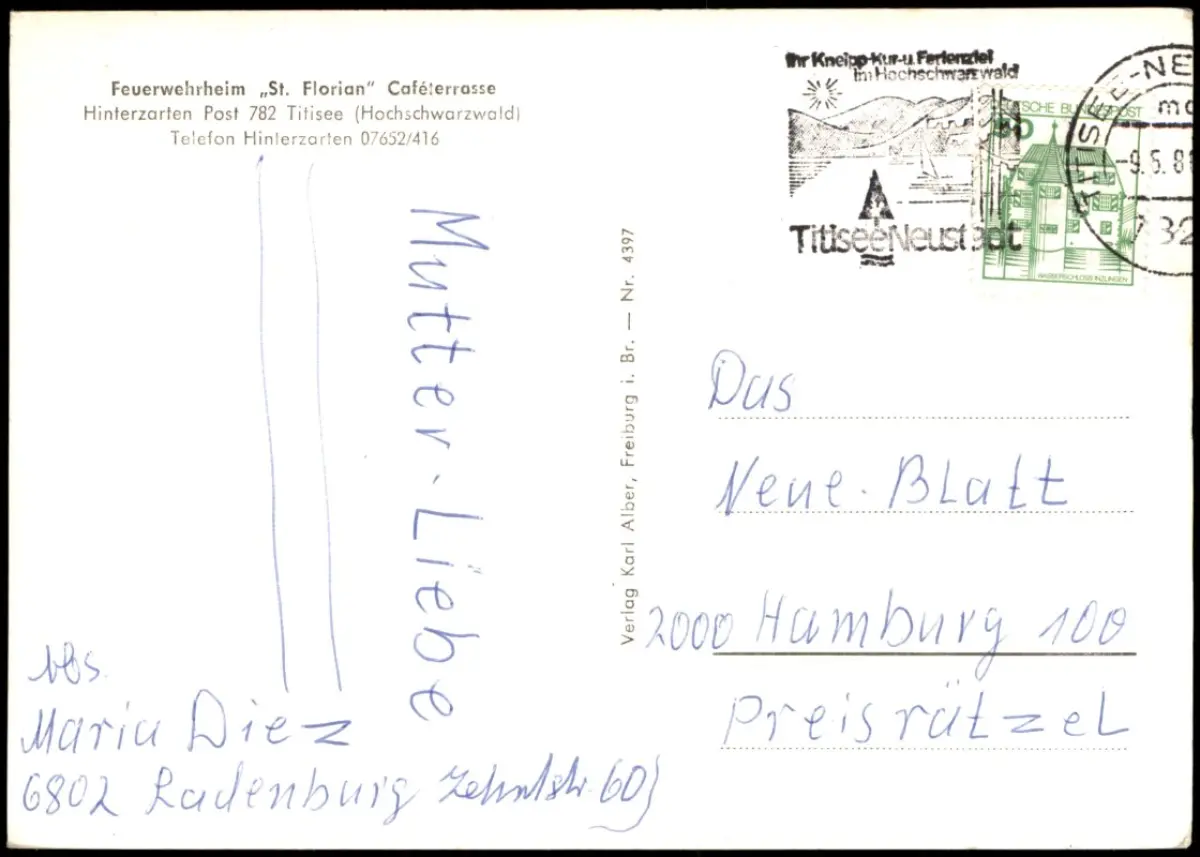 Feuerwehrheim „St. Florian“ Caféterrasse
Hinterzarten Post 782 Titisee (Hochschwarzwald)
Telefon Hinterzarten 07652/416
Ihr Kneipp-Kur-u. Ferienziel
im Hochschwarzwald
TitiseeNeustadt
DEUTSCHE BUNDESPOST
50
WASSERSCHLOSS INZLINGEN
TITISEE-NE
-9.5.8
Mutter-Liebe
Verlag Karl Alber, Freiburg i. Br. — Nr. 4397
Das
Neue-Blatt
2000 Hamburg 100
Preisrätzel
Abs.
Maria Diez
6802 Ladenburg Zehntstr. 60